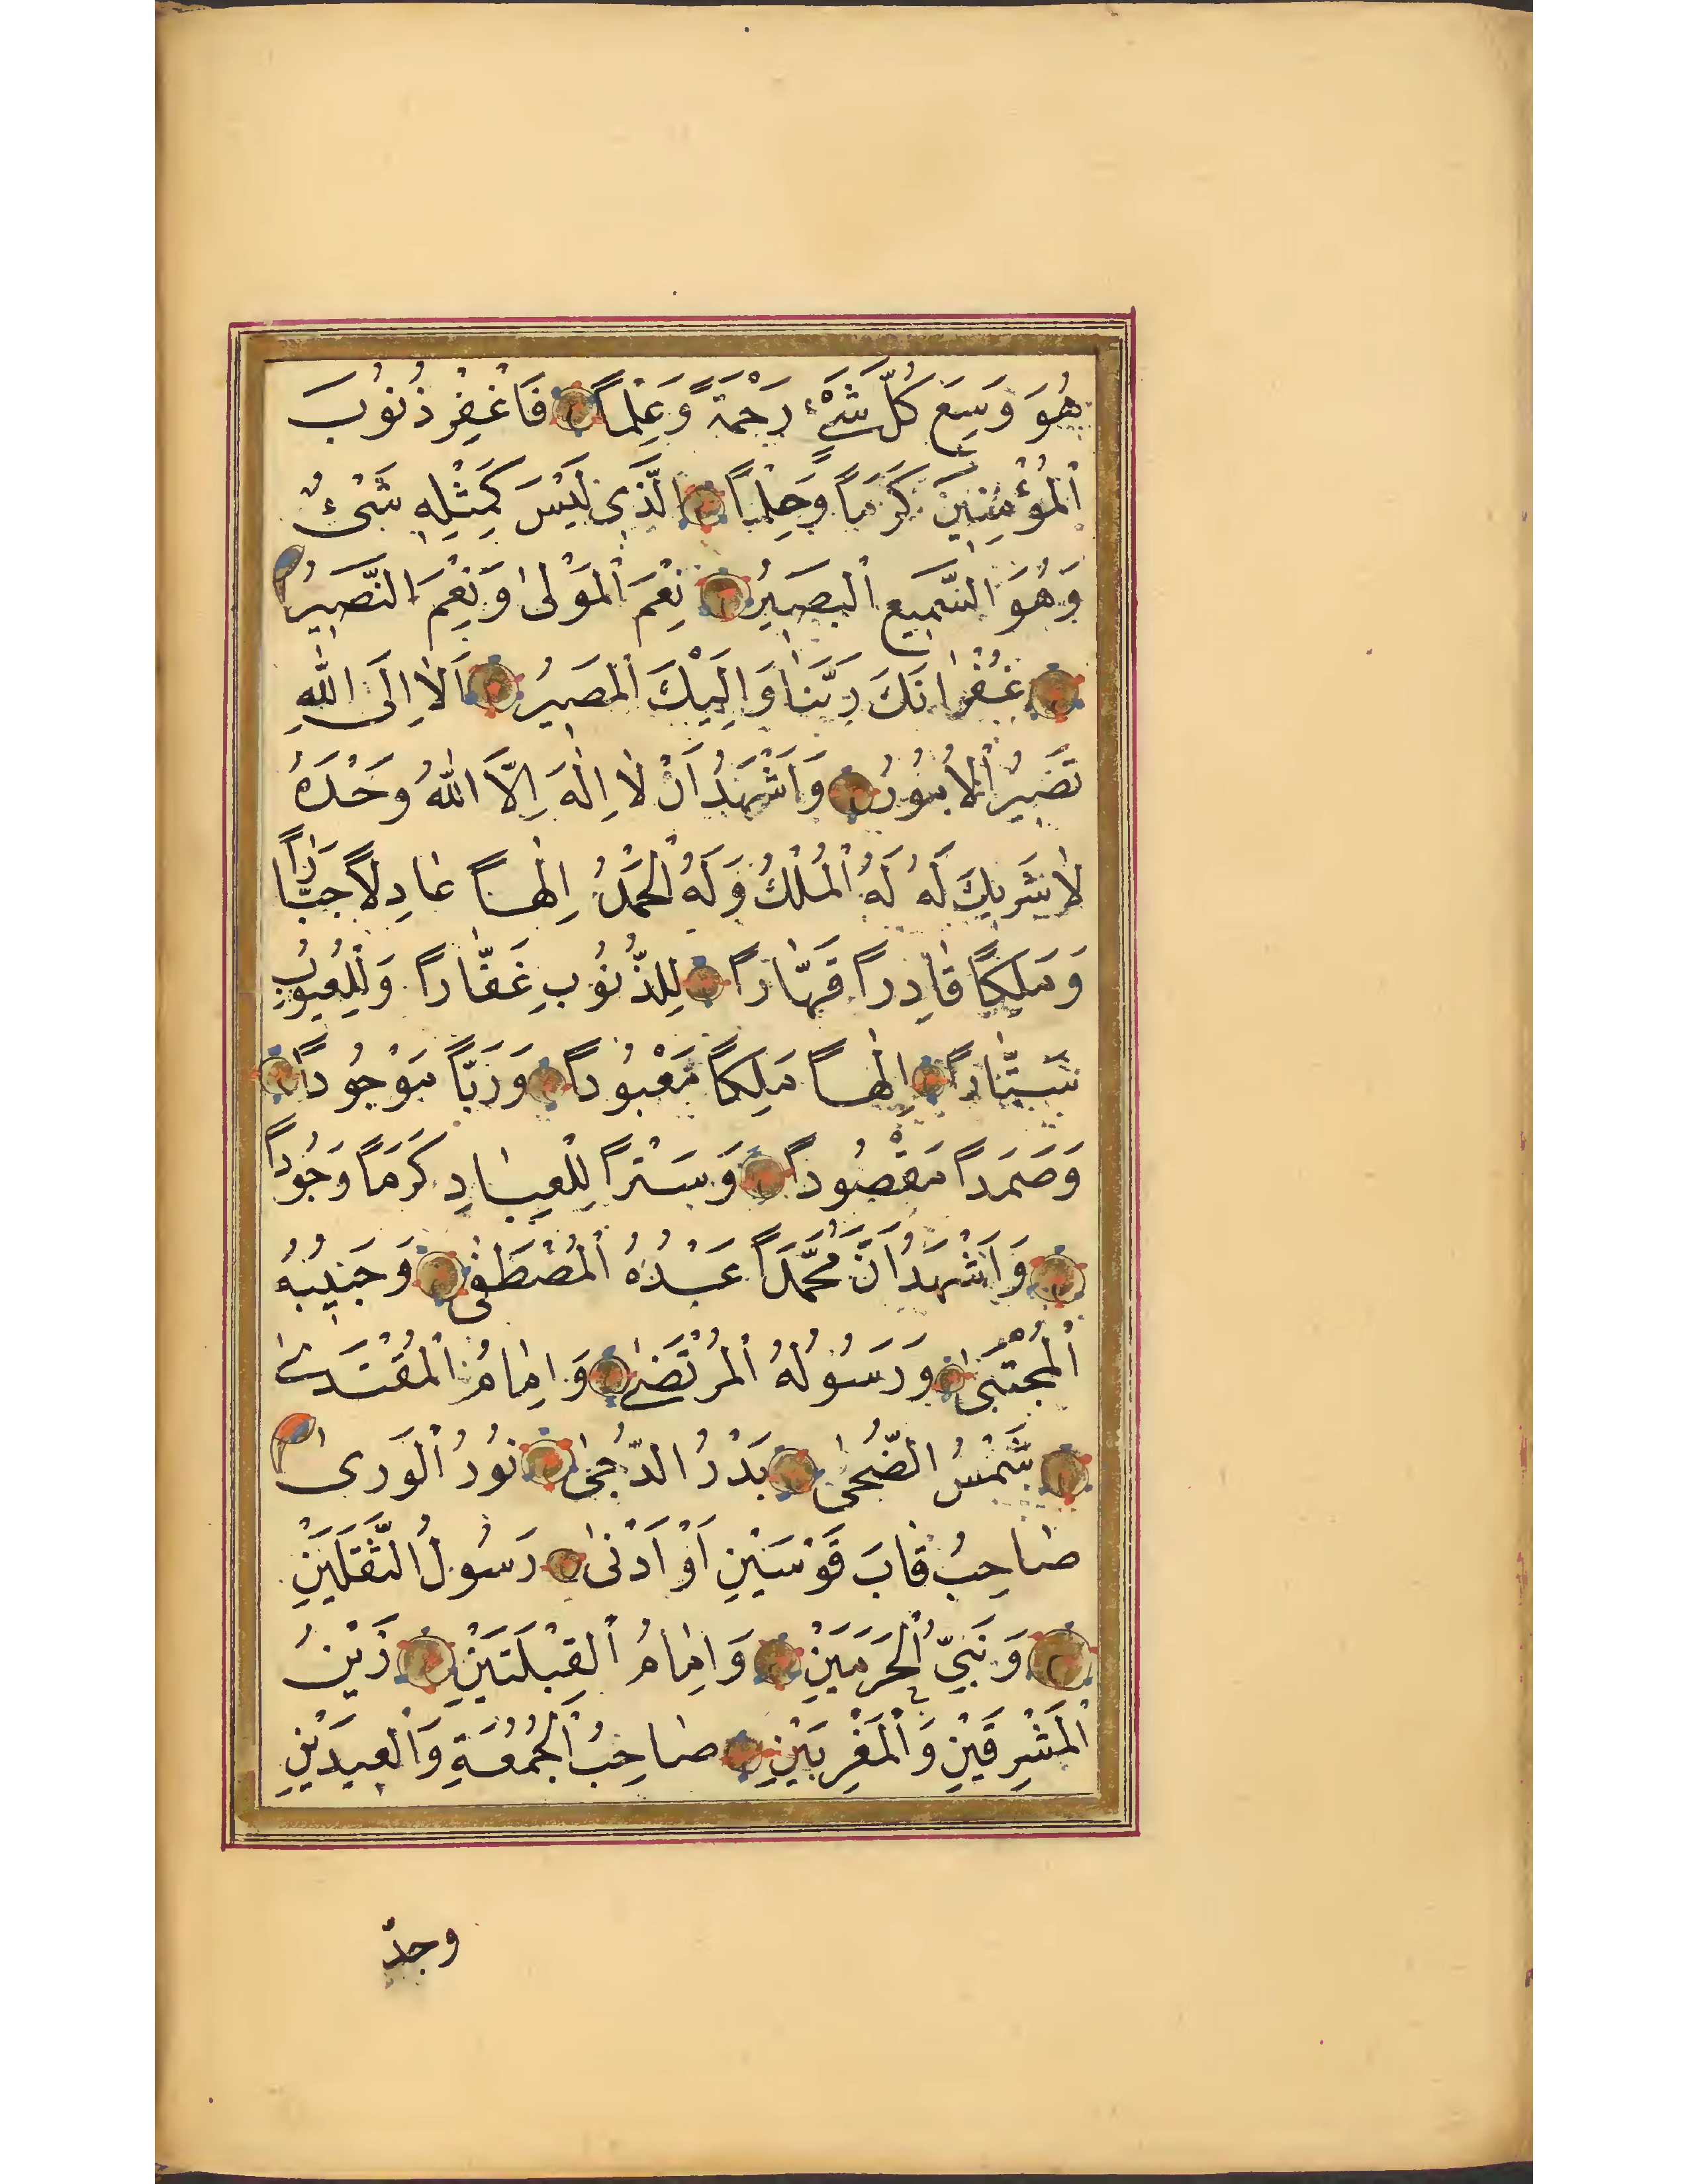 هُوَ وَسِعَ كُلَّ شَيْءٍ رَحْمَةً وَعِلْمًا فَاغْفِرْ ذُنُوبَ
الْمُؤْمِنِينَ كَرَمًا وَحِلْمًا الَّذِي لَيْسَ كَمِثْلِهِ شَيْءٌ
وَهُوَ السَّمِيعُ الْبَصِيرُ نِعْمَ الْمَوْلَى وَنِعْمَ النَّصِيرُ
غُفْرَانَكَ رَبَّنَا وَإِلَيْكَ الْمَصِيرُ اَلَا اِلَى اللهِ
تَصِيرُ الْأُمُورُ وَاَشْهَدُ اَنْ لَا اِلٰهَ اِلَّا اللهُ وَحْدَهُ
لَا شَرِيكَ لَهُ لَهُ الْمُلْكُ وَلَهُ الْحَمْدُ اِلٰهًا عَادِلًا جَبَّارًا
وَمَلِكًا قَادِرًا قَهَّارًا لِلذُّنُوبِ غَفَّارًا وَلِلْعُيُوبِ
سَتَّارًا اِلٰهًا مَلِكًا مَعْبُودًا وَرَبًّا مَوْجُودًا
وَصَمَدًا مَقْصُودًا وَسَتْرًا لِلْعِبَادِ كَرَمًا وَجُودًا
وَاَشْهَدُ اَنَّ مُحَمَّدًا عَبْدُهُ الْمُصْطَفٰى وَحَبِيبُهُ
الْمُجْتَبٰى وَرَسُولُهُ الْمُرْتَضٰى وَاِمَامُ الْمُقْتَدٰى
شَمْسُ الضُّحٰى بَدْرُ الدُّجٰى نُورُ الْوَرٰى
صَاحِبُ قَابَ قَوْسَيْنِ اَوْ اَدْنٰى رَسُولُ الثَّقَلَيْنِ
وَنَبِيُّ الْحَرَمَيْنِ وَاِمَامُ الْقِبْلَتَيْنِ زَيْنُ
الْمَشْرِقَيْنِ وَالْمَغْرِبَيْنِ صَاحِبُ الْجُمُعَةِ وَالْعِيدَيْنِ
وجدّ